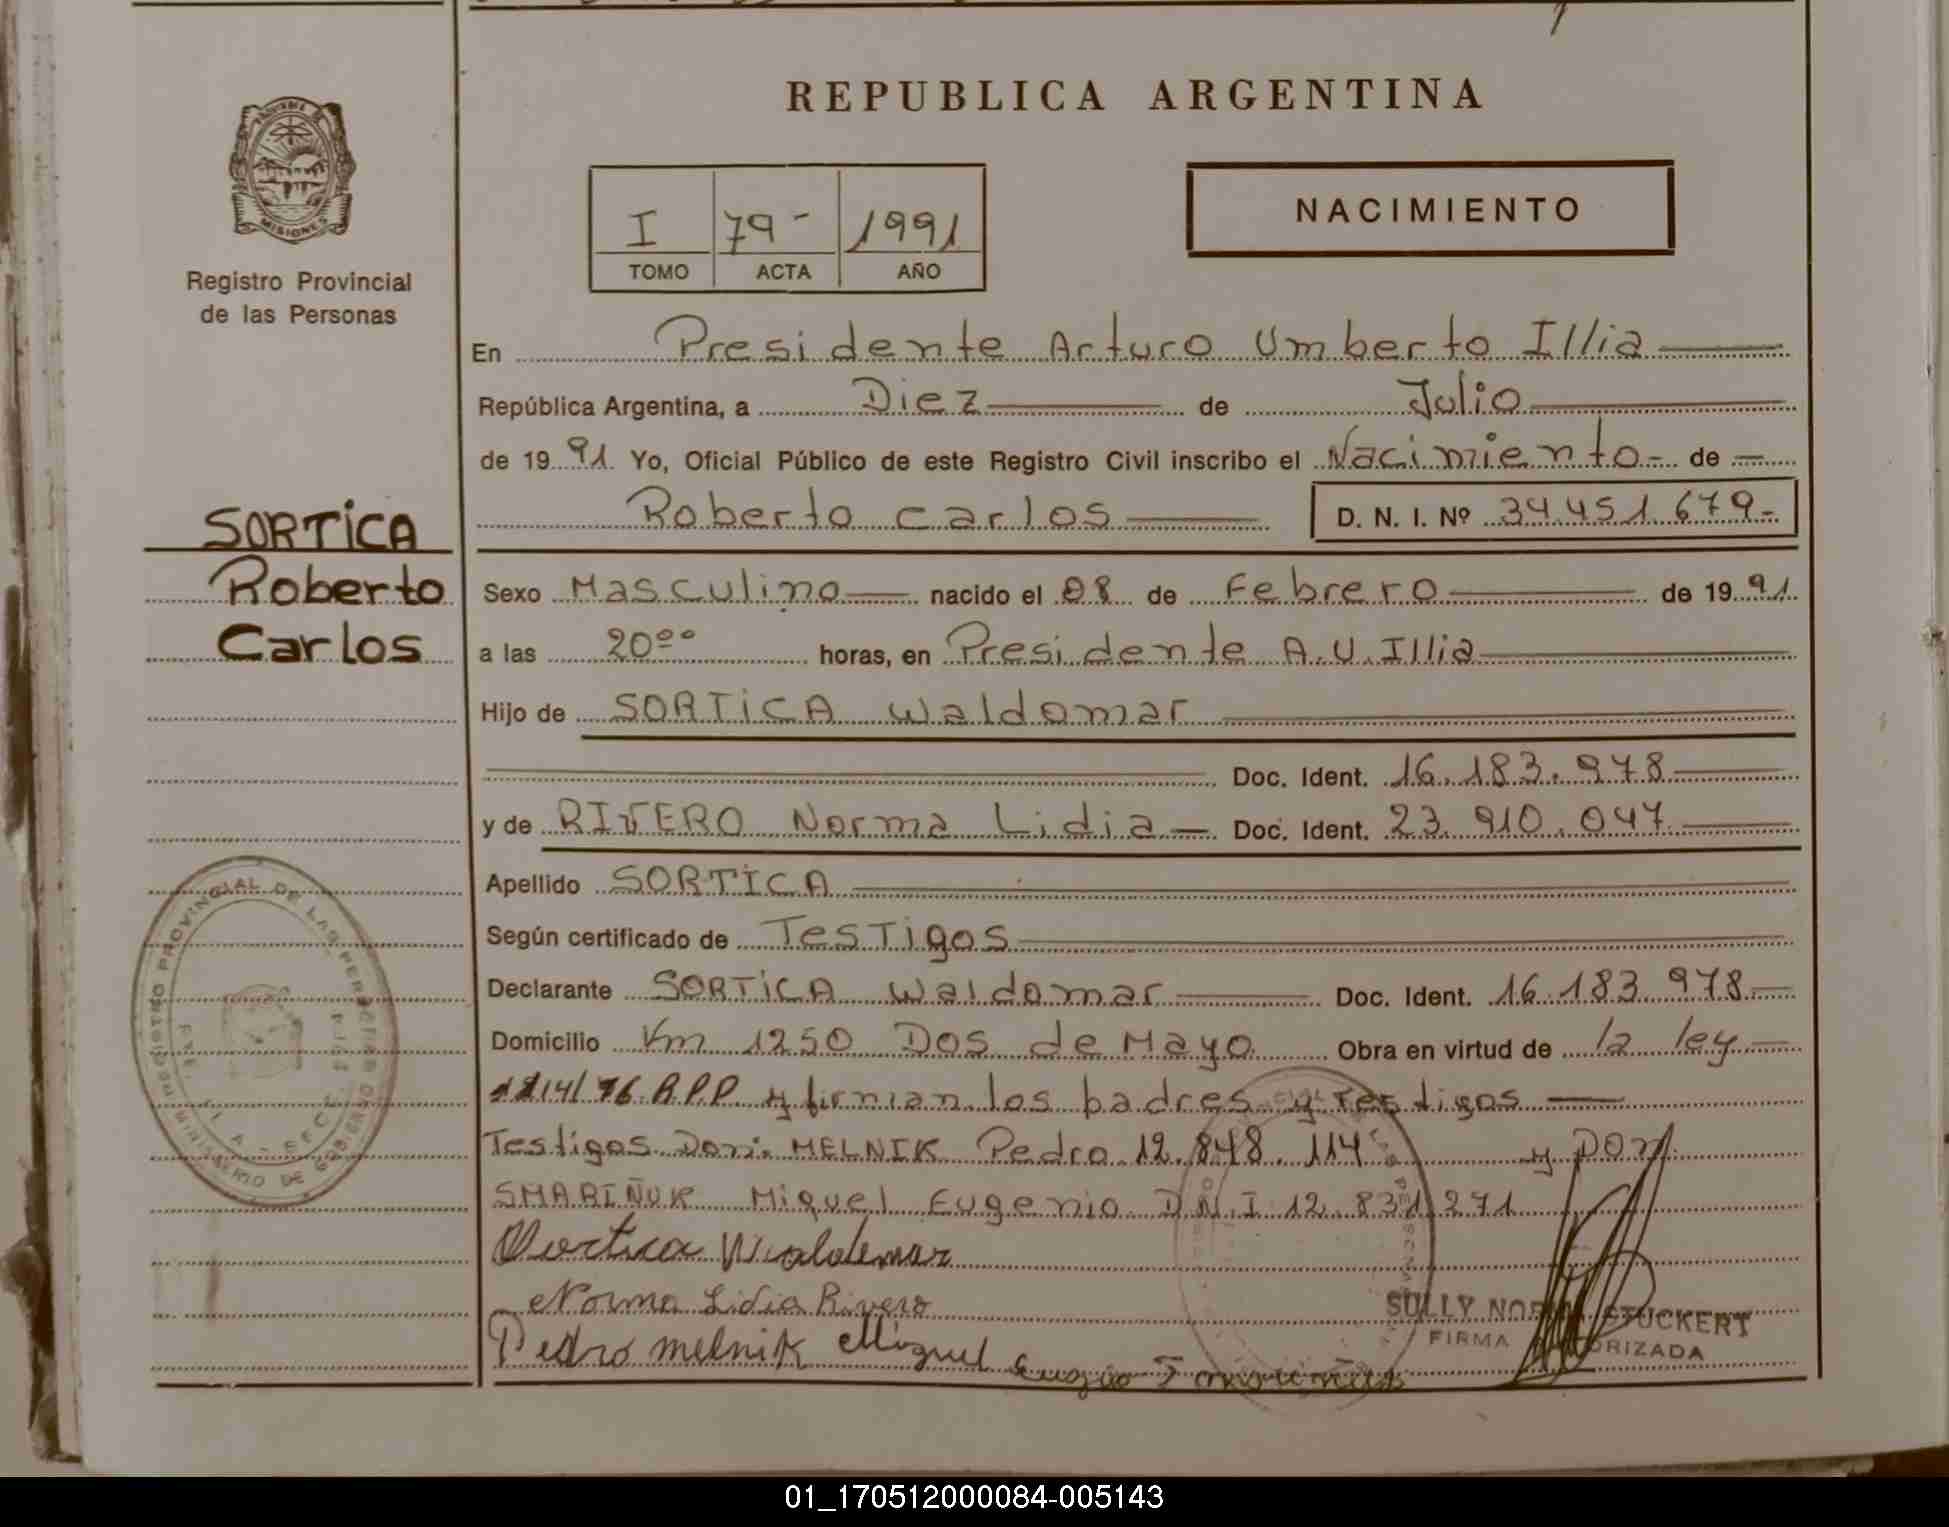 REPUBLICA ARGENTINA
MISIONES
Registro Provincial
de las Personas
I 79- 1991
TOMO ACTA AÑO
NACIMIENTO
En Presidente Arturo Umberto Illia
República Argentina, a Diez de Julio
de 1991. Yo, Oficial Público de este Registro Civil inscribo el Nacimiento- de
Roberto Carlos D. N. I. Nº 34.451.679-
SORTICA
Roberto
Carlos
Sexo Masculino nacido el 08 de Febrero de 1991.
a las 20ºº horas, en Presidente A.U. Illia
Hijo de SORTICA Waldomar
Doc. Ident. 16.183.978
y de RIVERO Norma Lidia Doc. Ident. 23.910.047
Apellido SORTICA
Según certificado de Testigos
Declarante SORTICA Waldomar Doc. Ident. 16.183.978.
Domicilio Km 1250 Dos de Mayo Obra en virtud de la ley
/76 R.P.P y firman los padres y Testigos
Testigos Don: MELNIK Pedro 12.848.114 y Don
SMARIÑUK Miguel Eugenio D.N.I 12.831.271
Sortica Waldemar
Norma Lidia Rivero
Pedro melnik Miguel
SULLY NORMA STUCKERT
FIRMA AUTORIZADA
REGISTRO PROVINCIAL DE LAS PERSONAS
MINISTERIO DE GOBIERNO
01_170512000084-005143